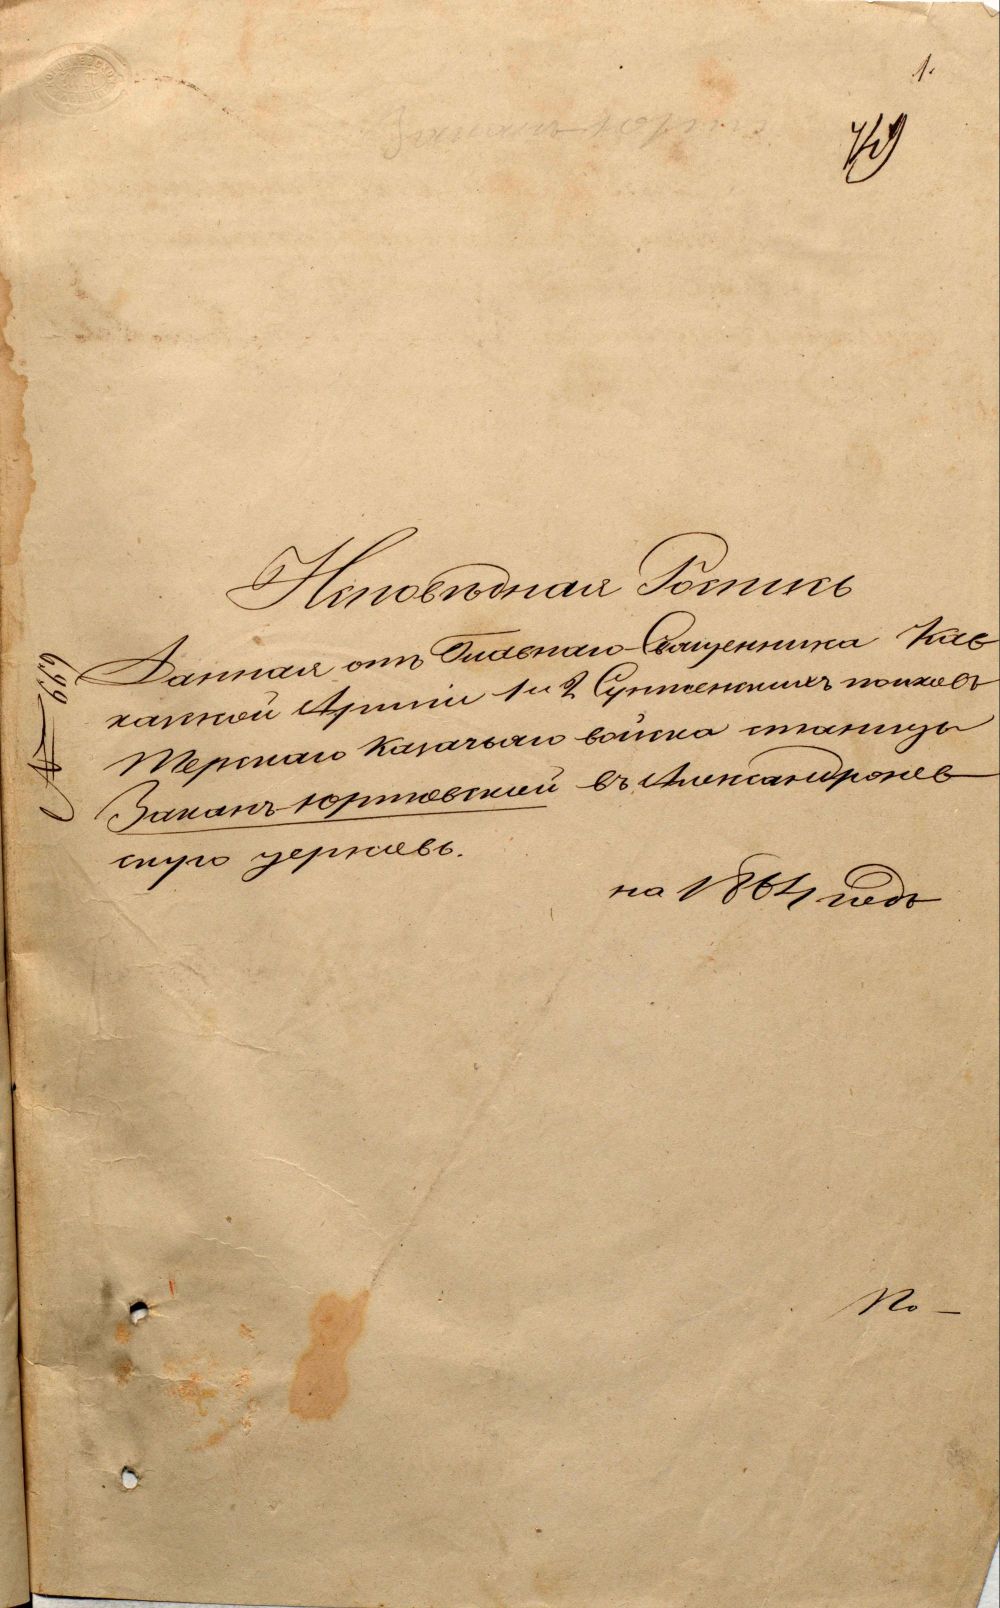 1.
Исповѣдная Роспись
Данная отъ Главнаго Священника Кав
казской Арміи 1 и 2 Сунженскихъ полковъ
Терскаго Казачьяго войска станицы
Законъ-юртовской въ Александроневс
скую церковь.
на 1864 годъ
По —
№ 699